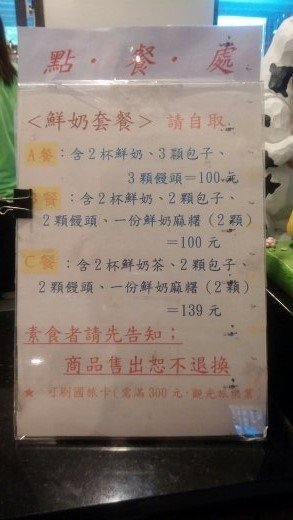 點·餐·處
<鮮奶套餐> 請自取
A餐:含2杯鮮奶、3顆包子、
3顆饅頭=100元
B餐:含2杯鮮奶、2顆包子、
2顆饅頭、一份鮮奶麻糬(2顆)
=100元
C餐:含2杯鮮奶茶、2顆包子、
2顆饅頭、一份鮮奶麻糬(2顆)
=139元
素食者請先告知;
商品售出恕不退換
★ 可刷國旅卡(需滿300元,觀光旅遊業